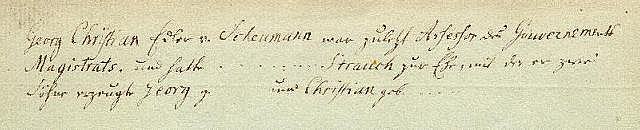 Georg Christian Edler v. Scheumann war zuletzt Assessor des Gouvernements
Magistrats. und hatte . . . . . . . . Strauch zur Ehe, mit der er zwei
Söhne erzeugte Georg g und Christian geb. . . . .